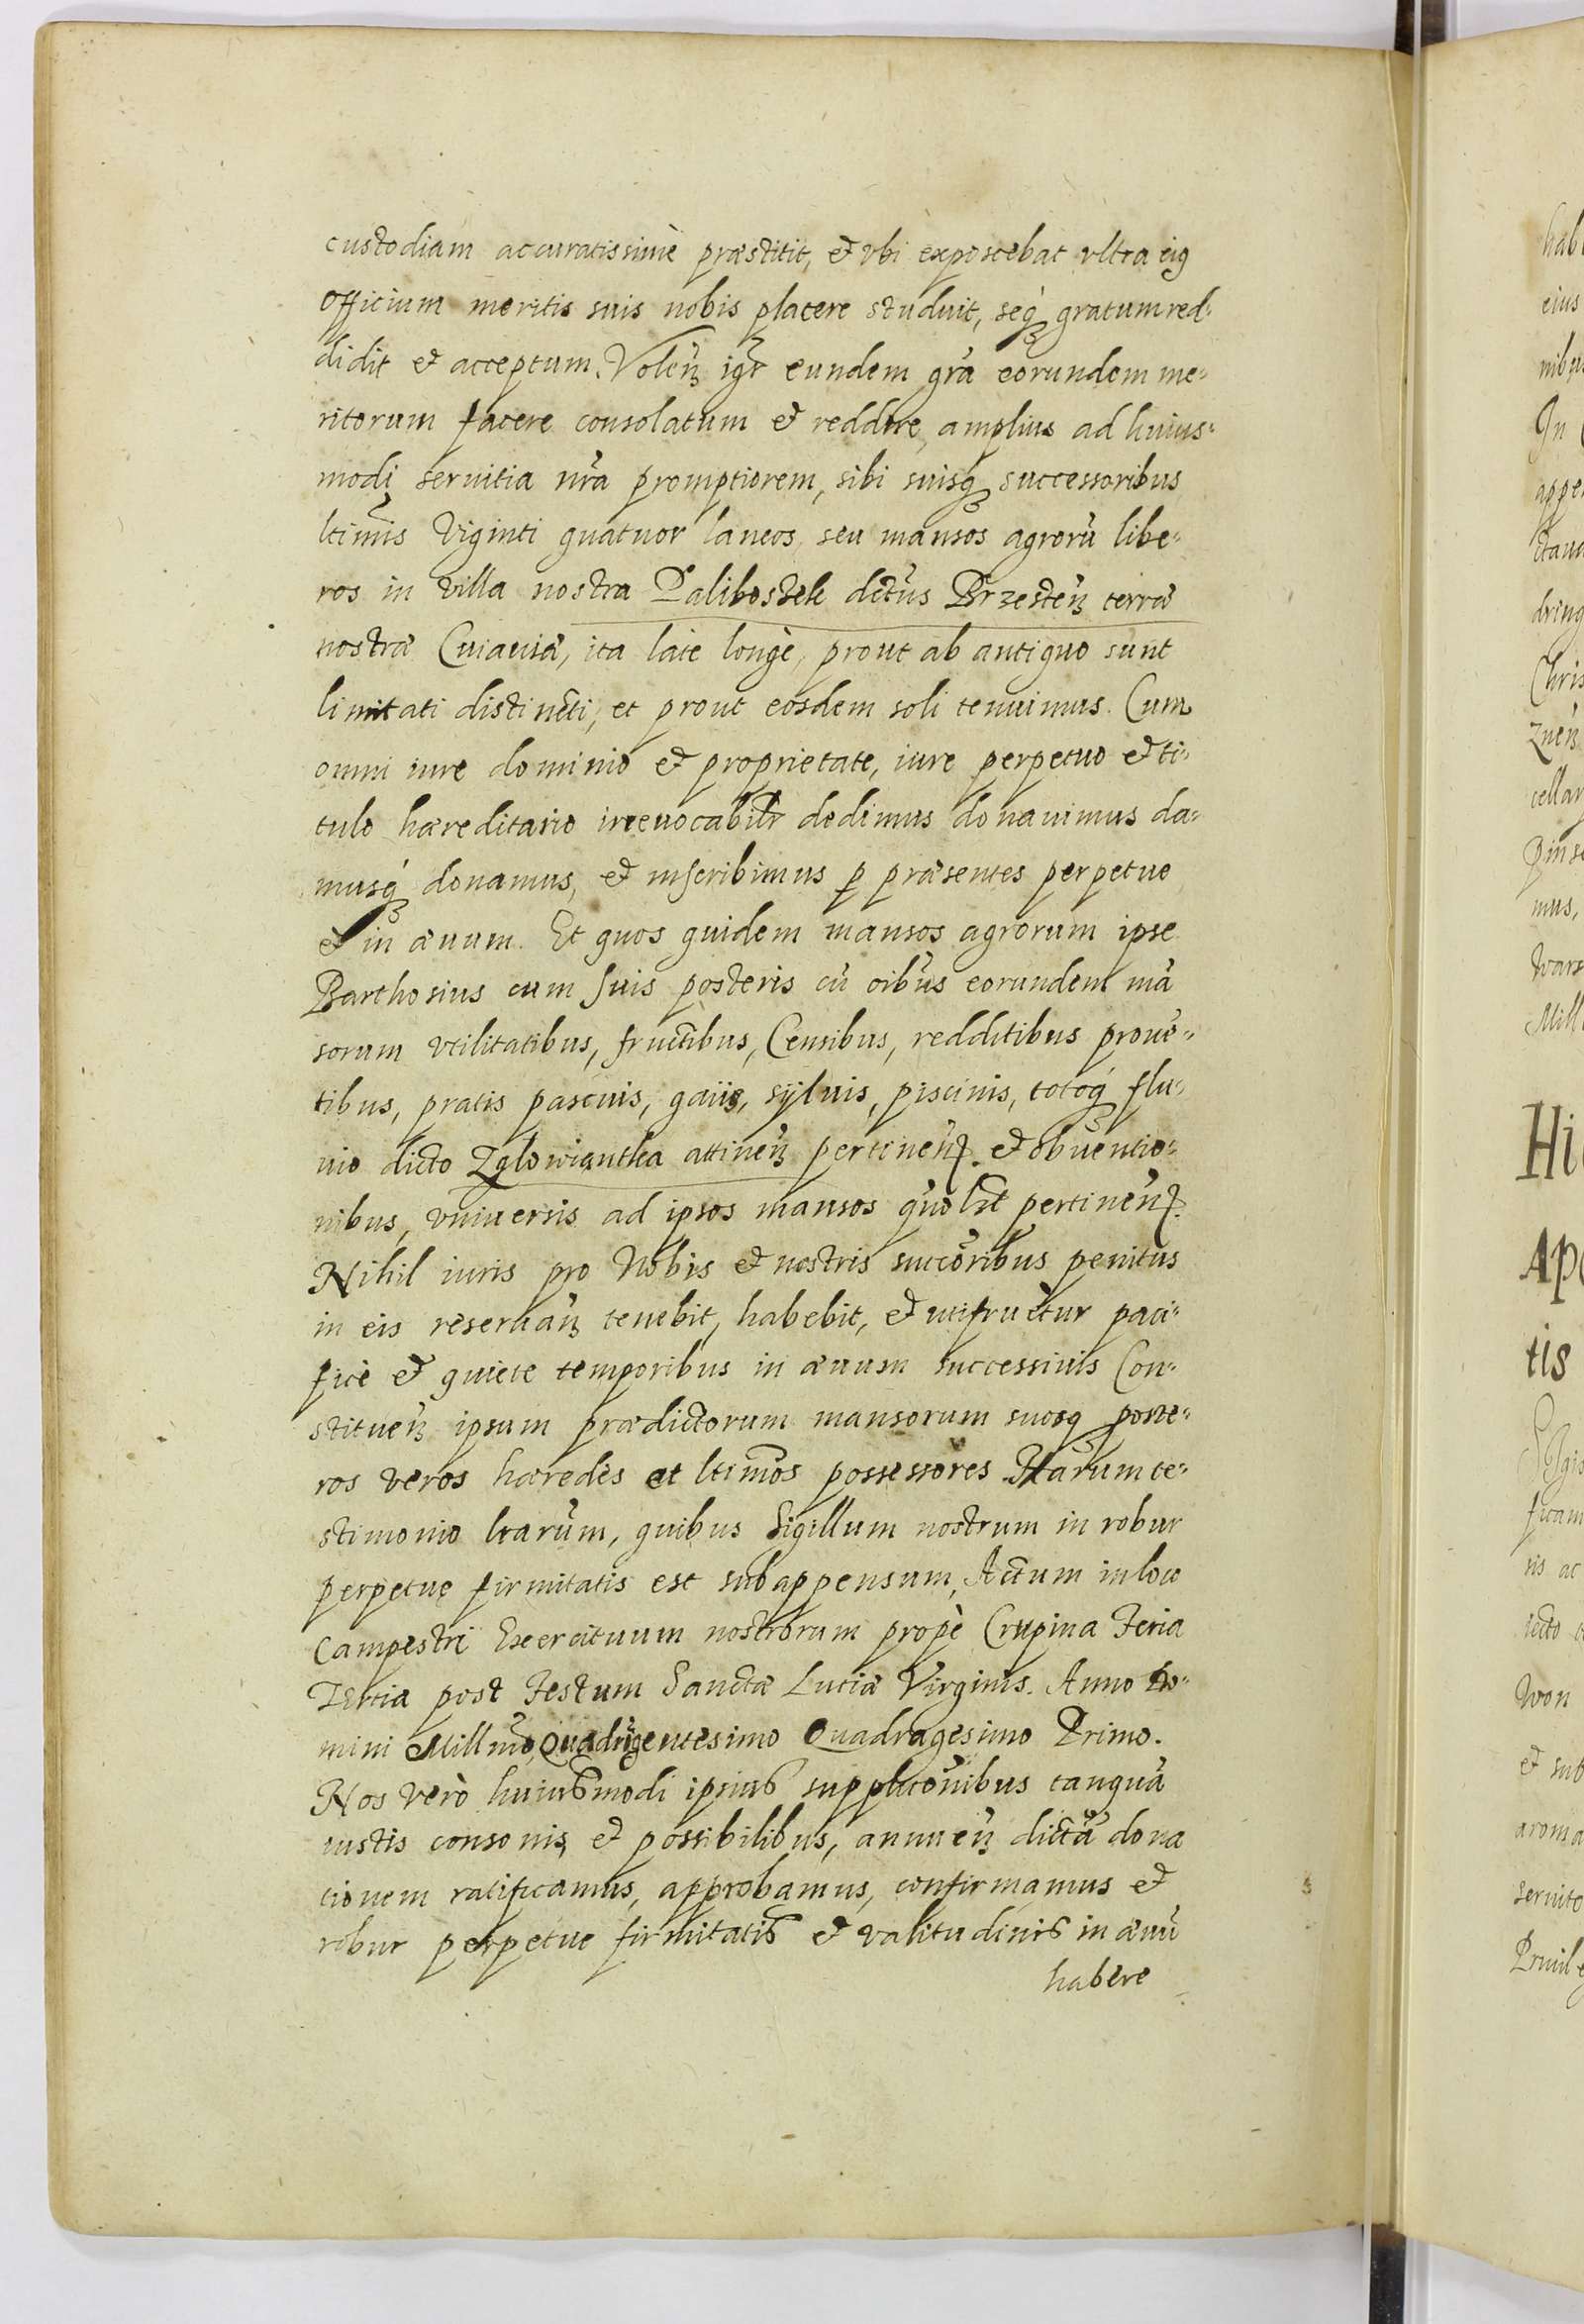 custodiam accuratissimè præstitit, et vbi exposcebat vltra eiꝯ
officium meritis suis nobis placere studuit, seqꝫ gratum red-
didit et acceptum. Volen̄ igr̄ eundem gr̄a eorundem me-
ritorum facere consolatum et reddere, amplius ad huius-
modi seruitia nr̄a promptiorem, sibi suisqꝫ successoribus
ltimis Viginti quatuor laneos seu mansos agrorū libe-
ros in villa nostra Paliboszek dctūs Brzesten̄ terræ
nostræ Cuiauiæ, ita late longè, prout ab antiquo sunt
limitati distincti, et prout eosdem soli tenuimus. Cum
omni iure dominio et proprietate, iure perpetuo et ti-
tulo hæreditario irreuocabilr̄ dedimus donauimus da-
musqꝫ donamus, et inscribimus ꝑ præsentes perpetue
et in æuum. Et quos quidem mansos agrorum ipse
Barthosius cum suis posteris cū oībus eorundem mā
sorum vtilitatibus, fructibus, Censibus, redditibus prouē-
tibus, pratis pascuis, gaiis, syluis, piscinis, totoqꝫ flu-
uio dicto Zglowiantka attinen̄ pertinen̄. et obuentio-
nibus, vniuersis ad ipsos mansos quolt̄ pertinen̄.
Nihil iuris pro Nobis et nostris succōribus penitus
in eis reseruan̄ tenebit, habebit, et utifruetur paci-
ficè et quiete temporibus in æuum successiuis Con-
stituen̄ ipsum prædictorum mansorum suosq poste-
ros veros hæredes et ltimōs possessores. Harum te-
stimonio lrarūm, quibus Sigillum nostrum in robur
perpetue firmitatis est subappensum, Actum in loco
Campestri Exercituum nostrorum propè Crupina Feria
Tertia post Festum Sanctæ Luciæ Virginis. Anno Do-
mini Millmō, Quadrigentesimo Quadragesimo Primo.
Nos verò huiusmodi ipsius supplicōnibus tanquā
iustis consonis, et possibilibus, annuen̄ dictā dona
tionem ratificamus, approbamus, confirmamus et
robur perpetue firmitatis et valitudinis in æuū
habere